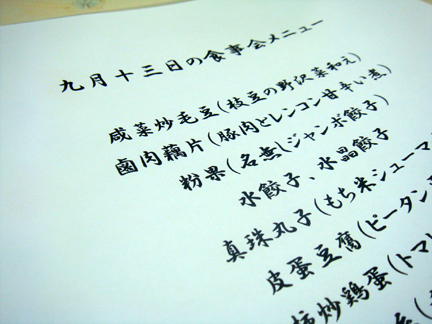 九月十三日の食事会メニュー
咸菜炒毛豆(枝豆の野沢菜和え)
鹵肉藕片(豚肉とレンコン甘辛い煮)
粉果(名無しジャンボ餃子)
水餃子、水晶餃子
真珠丸子(もち米シューマ
皮蛋豆腐(ピータン
炒鶏蛋(トマト